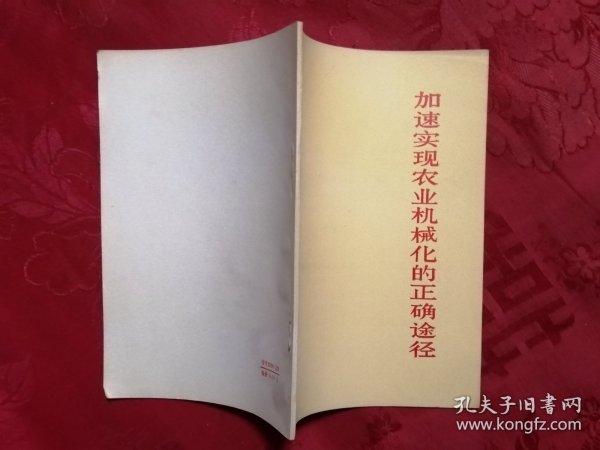 加速实现农业机械化的正确途径
孔夫子旧書网
www.kongfz.com